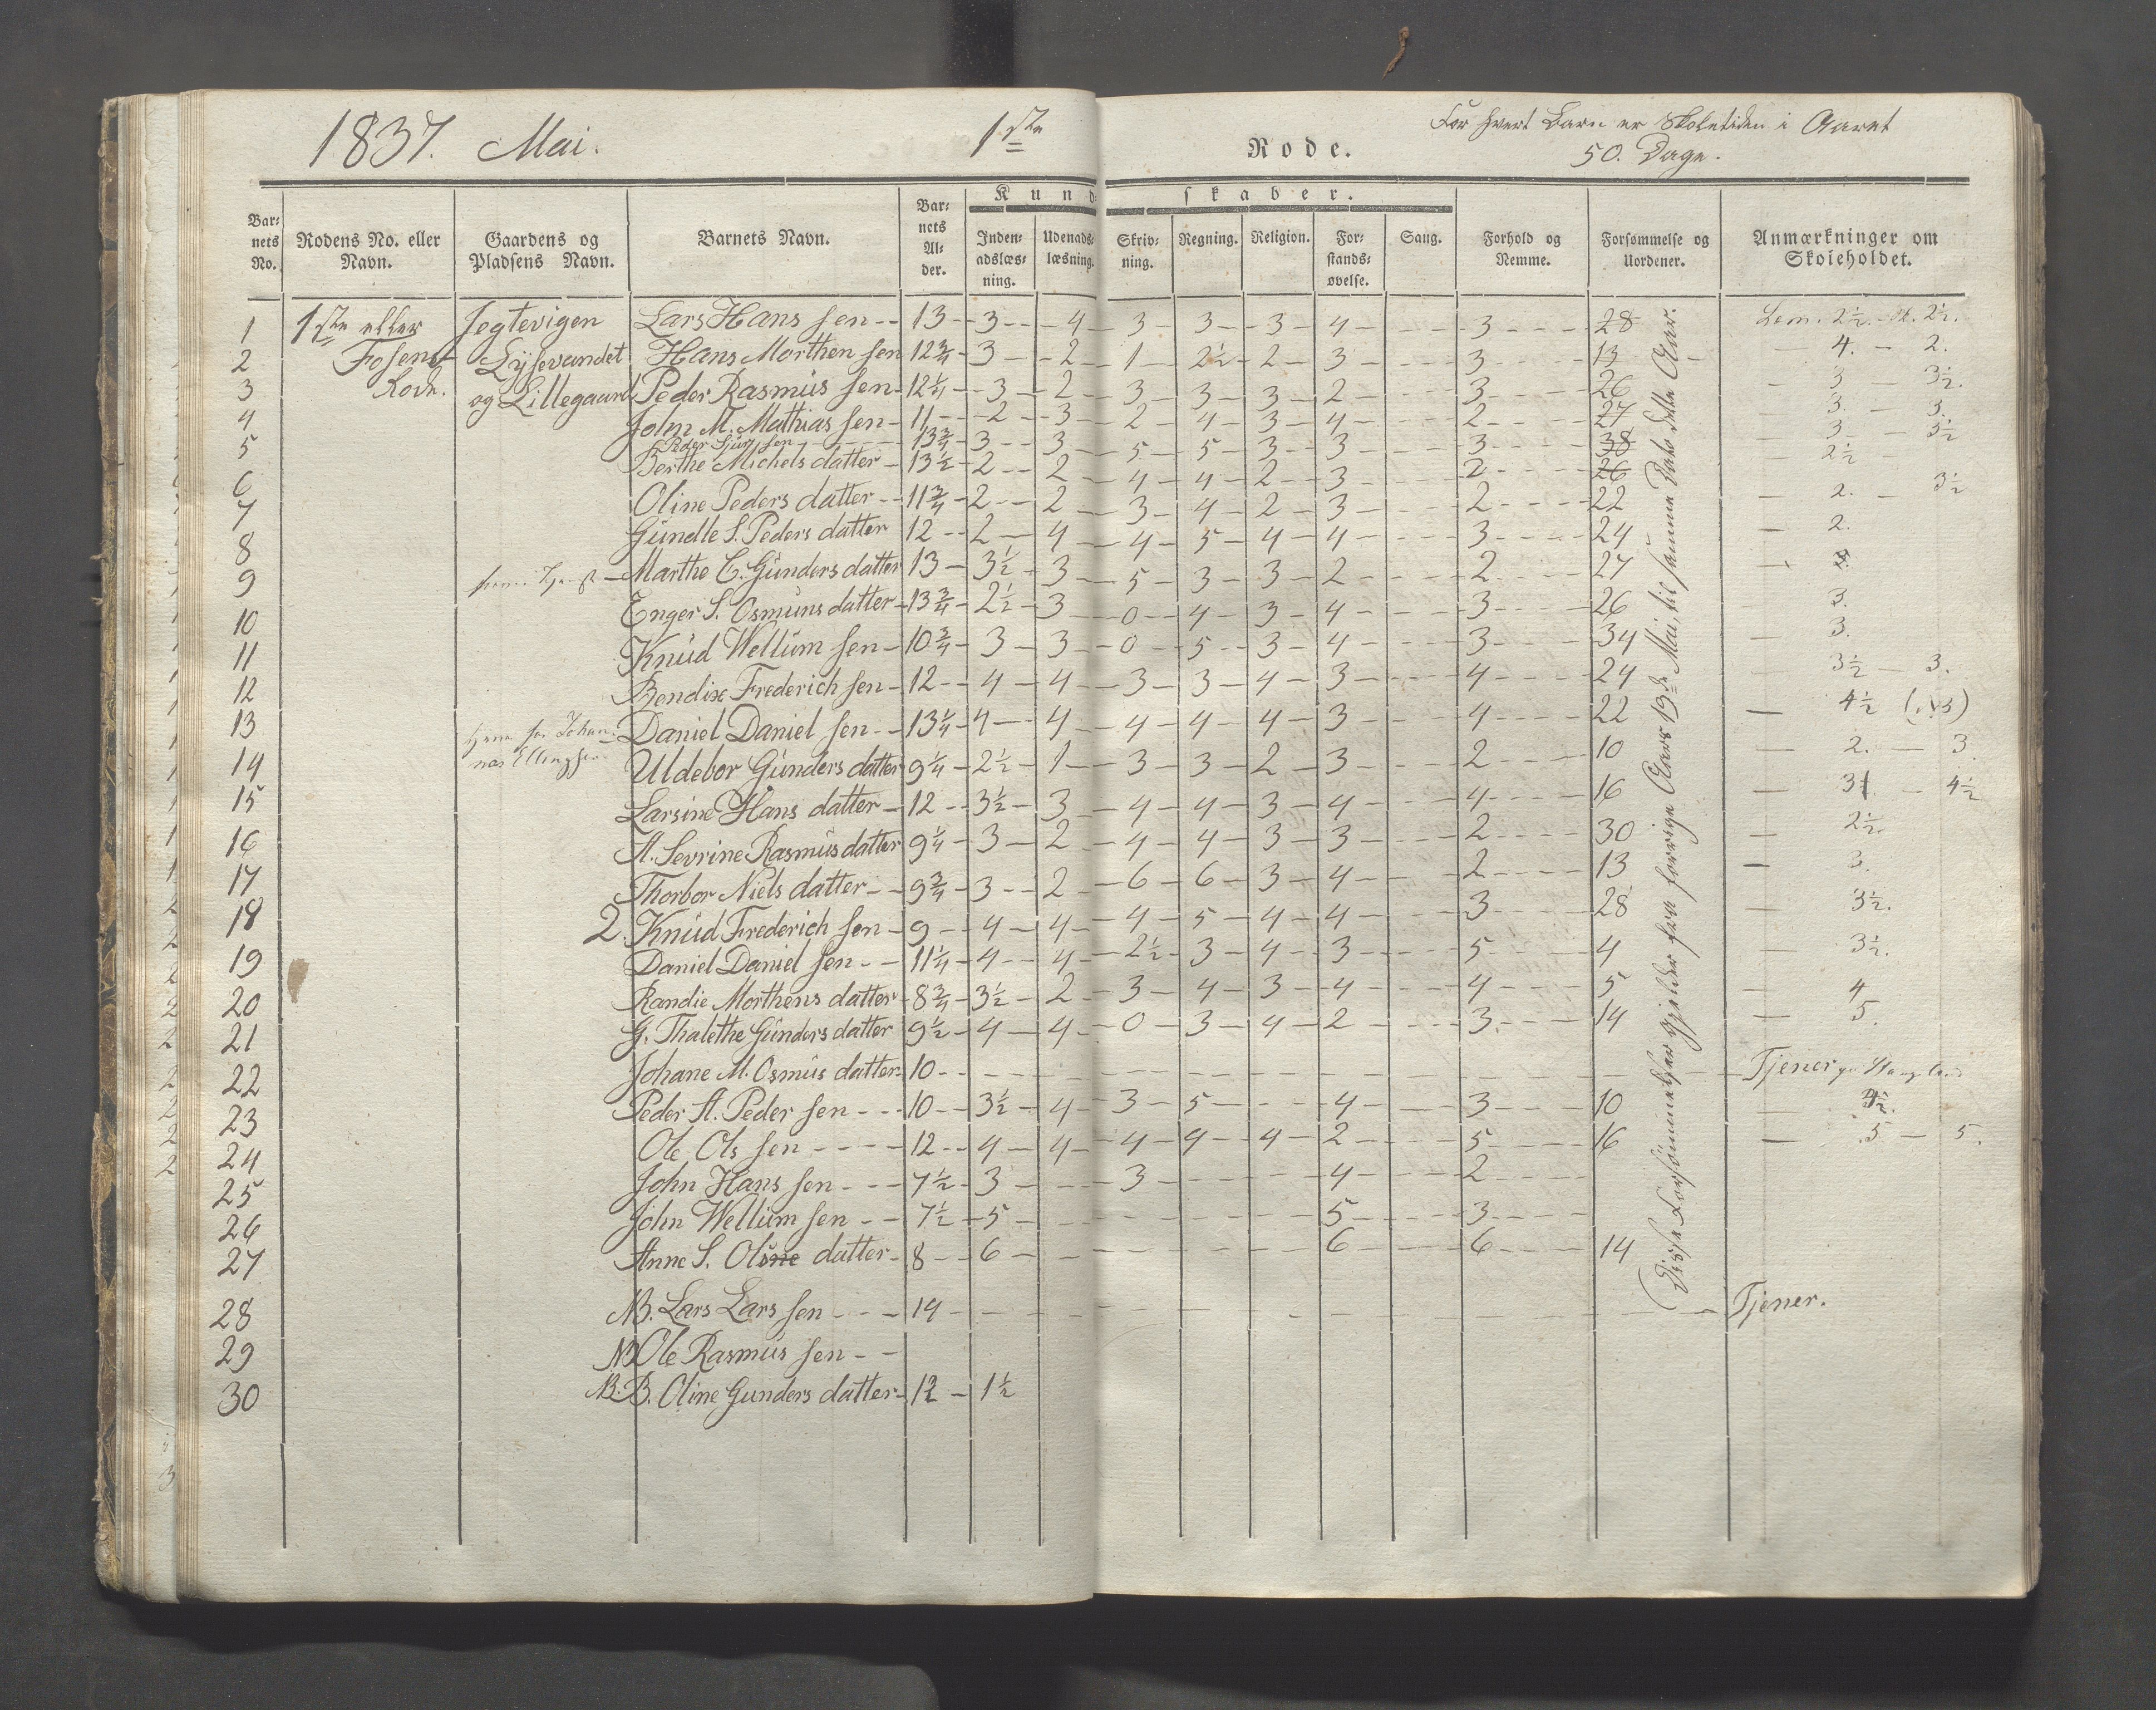 1837. Mai. 1ste Rode. For hvert Barn er Skoletiden i Aaret
50. Dage.
Kundskaber.
Bar: nets No. | Rodens No. eller Navn. | Gaardens og Pladsens Navn. | Barnets Navn. | Bar: nets Al: der. | Inden: adslæs: ning. | Udenads: læsning. | Skriv: ning. | Regning. | Religion. | For: stands: øvelse. | Sang. | Forhold og Nemme. | Forsømmelse og Uordener. | Anmærkninger om Skoleholdet.
1 1ste eller Jegtevigen Lars Hans sen 13 3 4 3 3 3 4 3 28 2½ 2½.
2 Fosens Lysevandet Hans Morthen sen 12¾ 3 2 1 2½ 2 3 3 13 4. 2.
3 Rode. og Lillegaard Peder Rasmus sen 12¼ 3 2 3 3 3 2 3 26 3 3½.
4 John M. Mathias sen 11 2 3 2 4 3 4 2 27 3. 3.
Peder Sjur sen 13¾ 3 3 5 5 3 3 3 38 3 3½
5 Berthe Michels datter 13½ 2 2 4 4 2 3 2 26 2½
6 Oline Peders datter 11¾ 2 2 3 4 2 3 2 22 2. 3½
7 Gundle S. Peders datter 12 2 4 4 5 4 4 3 24 2.
8 Marthe C. Gunders datter 13 3½ 3 5 3 3 2 2 27
9 Enger S. Osmuns datter 13¾ 2½ 3 0 4 3 4 3 26 3.
10 Knud Wellum sen 10¾ 3 3 0 5 3 4 3 34 3.
11 Bendix Frederich sen 12 4 4 3 3 4 3 4 24 3½ 3.
12 Daniel Daniel sen 13¼ 4 4 4 4 4 3 4 22 4½
13 tjener for Johannes Ellingsen
Uldebor Gunders datter 9¼ 2½ 1 3 3 2 3 2 10 2. 3
14 Larsine Hans datter 12 3½ 3 4 4 3 4 4 16 3 4½
15 A. Sevrine Rasmus datter 9¼ 3 2 4 4 3 3 2 30 2½.
16 Thorbor Niels datter 9¾ 3 2 6 6 3 4 2 13 3.
17 2. Knud Frederich sen 9 4 4 4 5 4 4 3 28 3½.
18 Daniel Daniel sen 11¼ 4 4 2½ 3 4 3 5 4 3½.
19 Randie Morthens datter 8¾ 3½ 2 3 4 3 4 4 5 4
20 G. Thalethe Gunders datter 9½ 4 4 0 3 4 2 3. 14 5.
21 Johane M. Osmus datter 10 Tjener
22 Peder A. Peder sen 10 3½ 4 3 5 4 3 10
23 Ole Ols sen 12 4 4 4 4 4 2 5 16 5 5.
24 John Hans sen 7½ 3 3 4 2
25 John Wellum sen 7½ 5 5 3
26 Anne S. Oline datter 8 6 6 6 14
27
28 NB. Lars Lars sen 14 Tjener.
29 NB Ole Rasmus sen
30 NB. B. Oline Gunders datter 12 1½
Disse Forsømmelser gjelder fra forrige Aars 13de Mai, til samme Dato dette Aar.